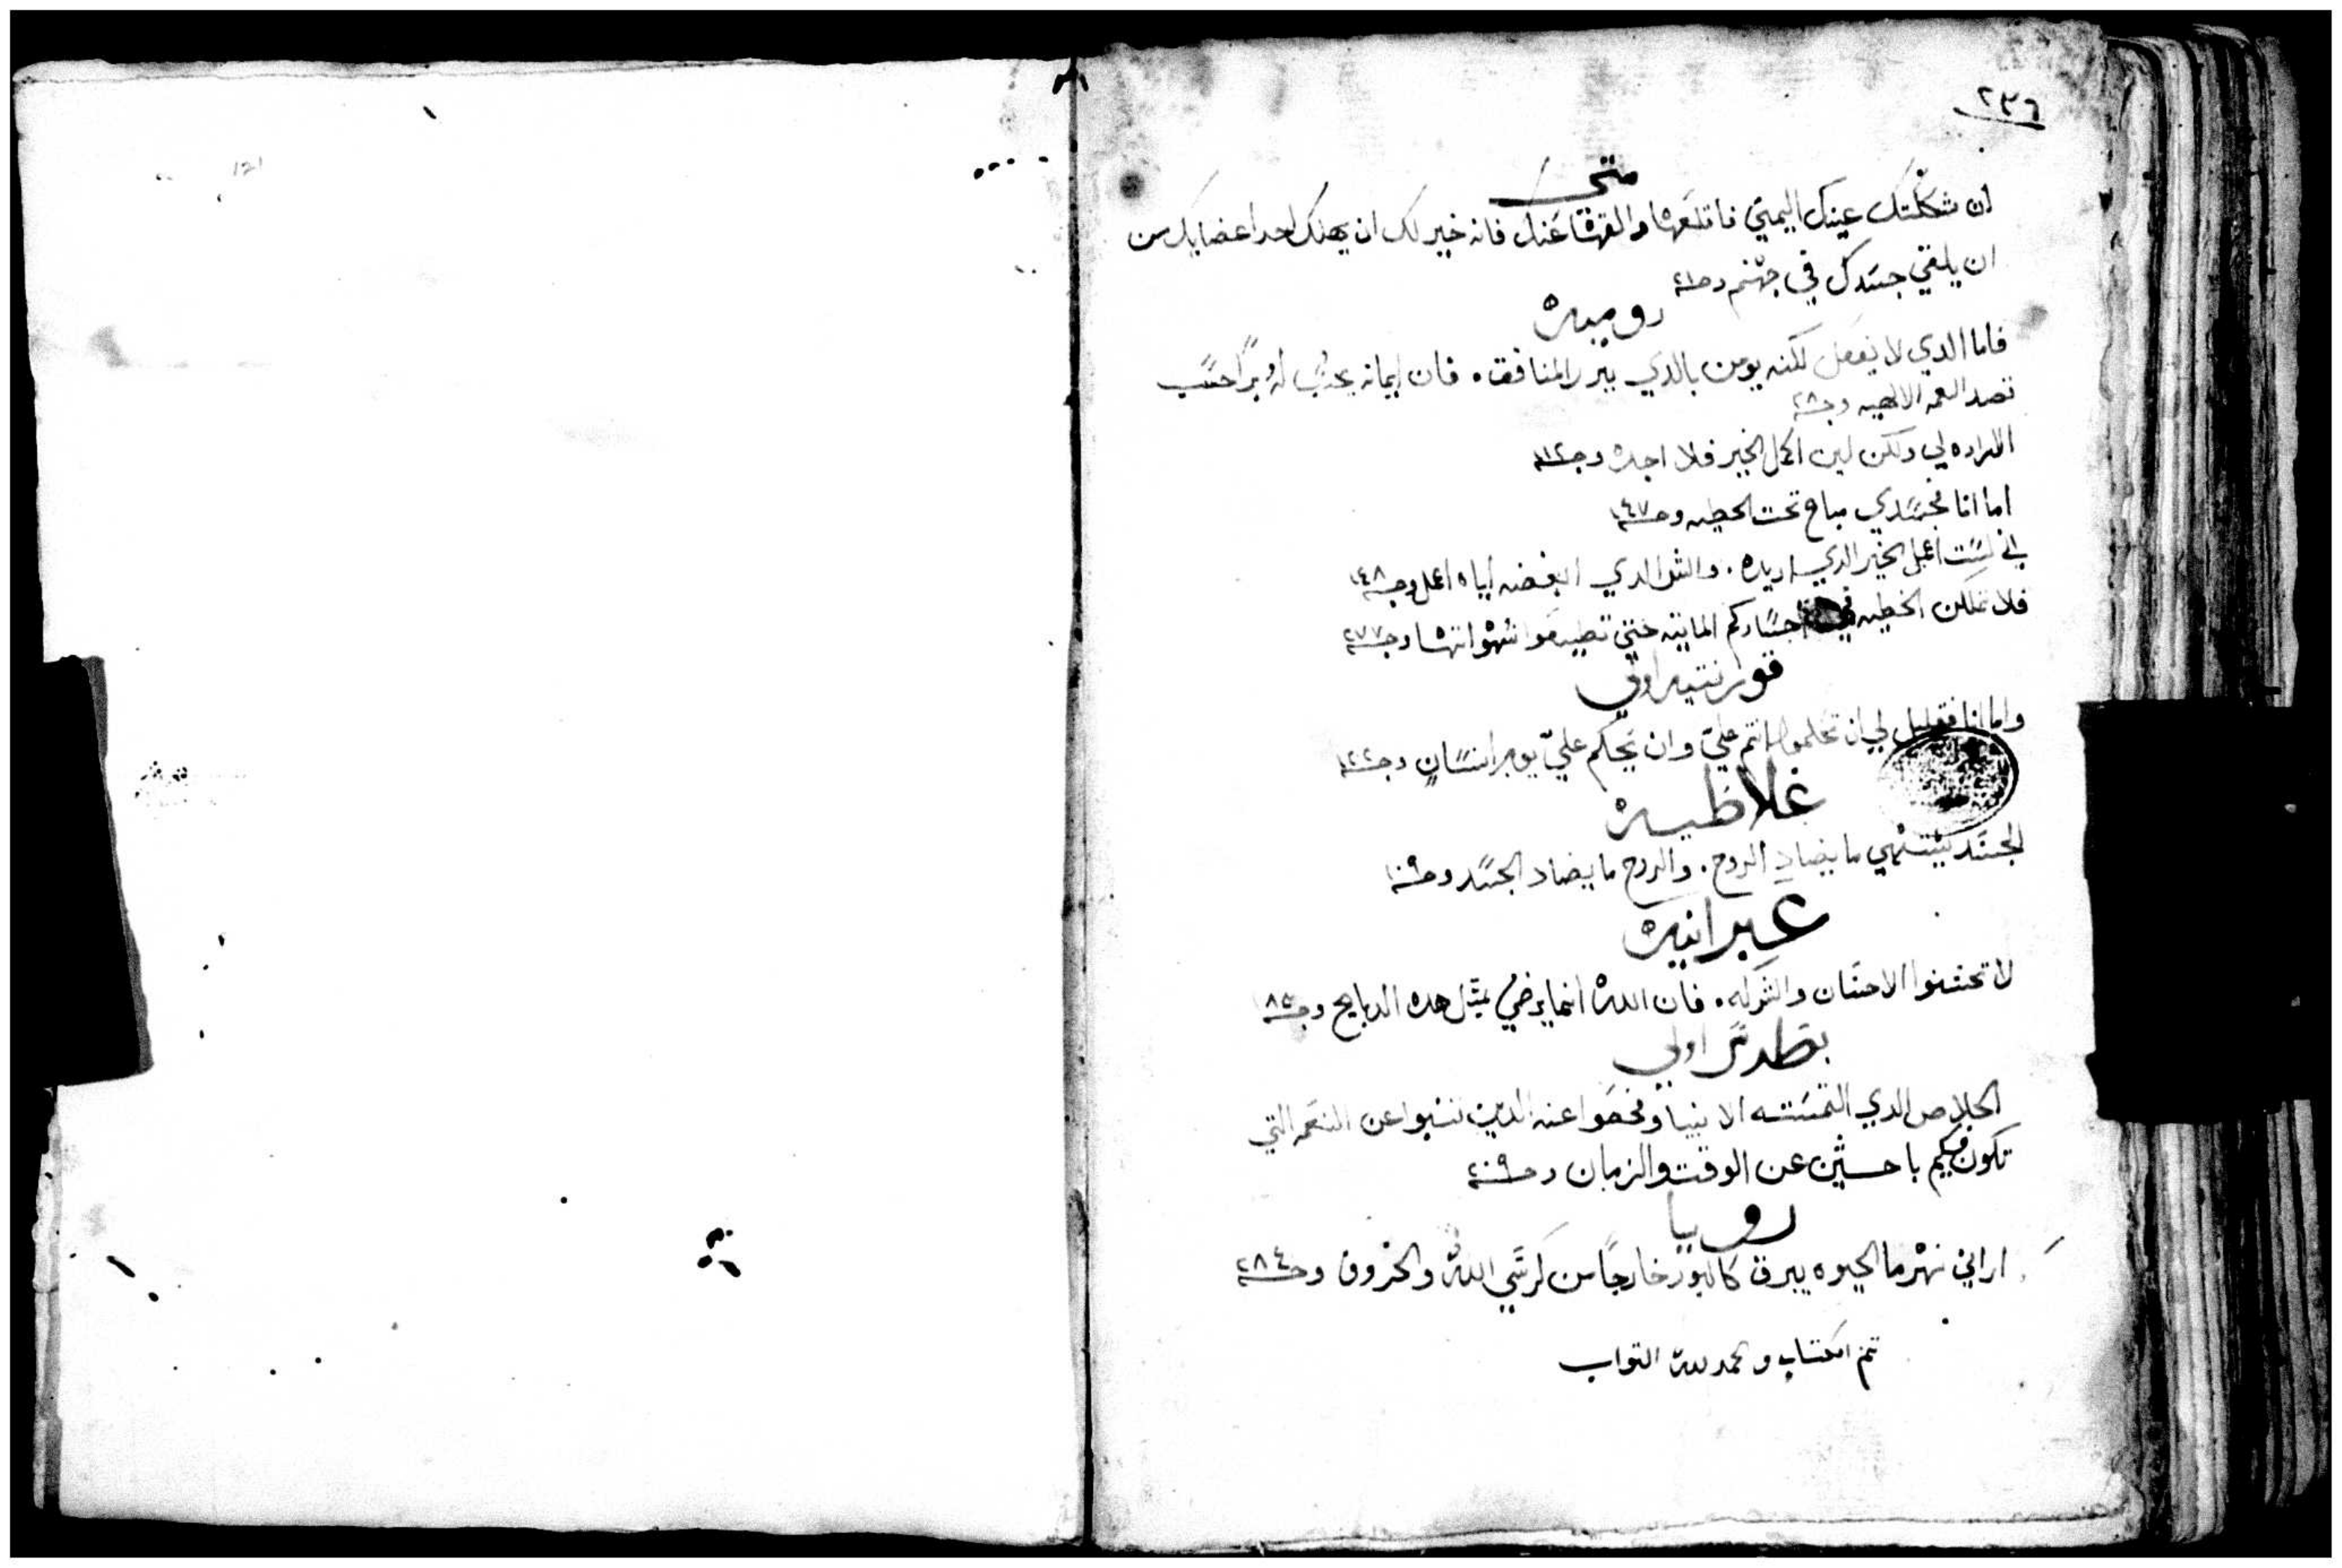 ٢٣٦
متى
ان شككتك عينك اليمني فاقلعها والقها عنك فانه خير لك ان يهلك احد اعضايك من
ان يلقي جسدك في جهنم وجه ٢١
روميه
فاما الدي لا يفعل لكنه يومن بالدي يبرر المنافق . فان ايمانه يحسب له براً حسب
قصد النعمه الالهيه وجه ٢٨
الاراده لي ولكن لين اكمل الخير فلا اجده وجه ١١٢
اما انا فجسدي مباع تحت الخطيه وجه ١٤٧
اني لست اعمل الخير الذي اريده . والشر الدي ابغضه اياه اعمل وجه ١٤٨
فلا تملكن الخطيه في اجسادكم المايته حتي تطيعوا شهواتها وجه ٢٧٧
قورنتيه اولي
واما انا فقليل لي ان تحكموا انتم عليّ وان يحكم عليّ يوم انسان وجه ١٢٢
غلاطيه
الجسد يشتهي ما يضاد الروح . والروح ما يضاد الجسد وجه ١٠٩
عبرانيه
لا تحتنوا الاحسان والشركه . فان الله انما يرضي بمثل هده الدبايح وجه ١٨٣
بطرس اولي
الخلاص الدي التمسته الانبيا وفحصوا عنه الدين تنبوا عن النعمه التي
تكون فيكم باحثين عن الوقت والزمان وجه ٢٠٩
رويا
اراني نهر ما الحيوه يبرق كالبلور خارجاً من كرسي الله والخروف وجه ٢٨٤
تم الكتاب والحمد لله التواب